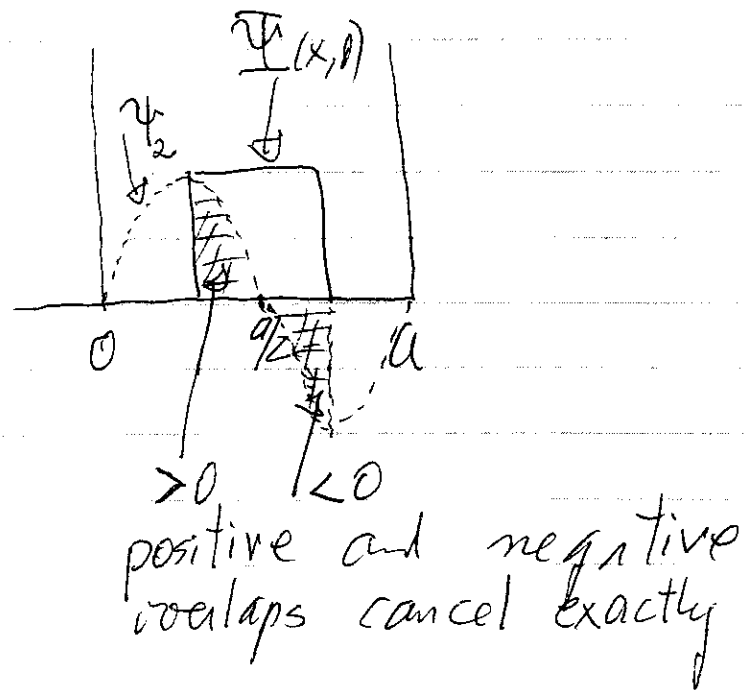 Ψ(x,0)
ψ₂
0
a/2
a
>0
<0
positive and negative
overlaps cancel exactly